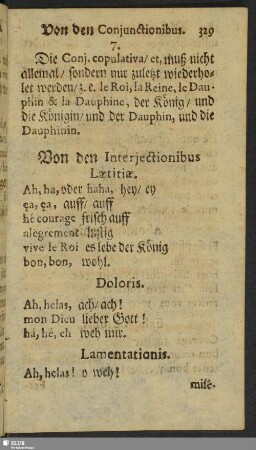 Von den Conjunctionibus. 329
7.
Die Conj. copulativa/ et, muß nicht
allemal/ sondern nur zuletzt wiederho-
let werden/ z. e. le Roi, la Reine, le Dau-
phin & la Dauphine, der König/ und
die Königin/ und der Dauphin, und die
Dauphinin.
Von den Interjectionibus
Lætitiæ.
Ah, ha, oder haha, hey/ ey
ça, ça, auff/ auff
hé courage frisch auff
alegrement lustig
vive le Roi es lebe der König
bon, bon, wohl.
Doloris.
Ah, helas, ach/ ach!
mon Dieu lieber Gott!
há, hé, eh weh mir.
Lamentationis.
Ah, helas! o weh!
mise-
SLUB